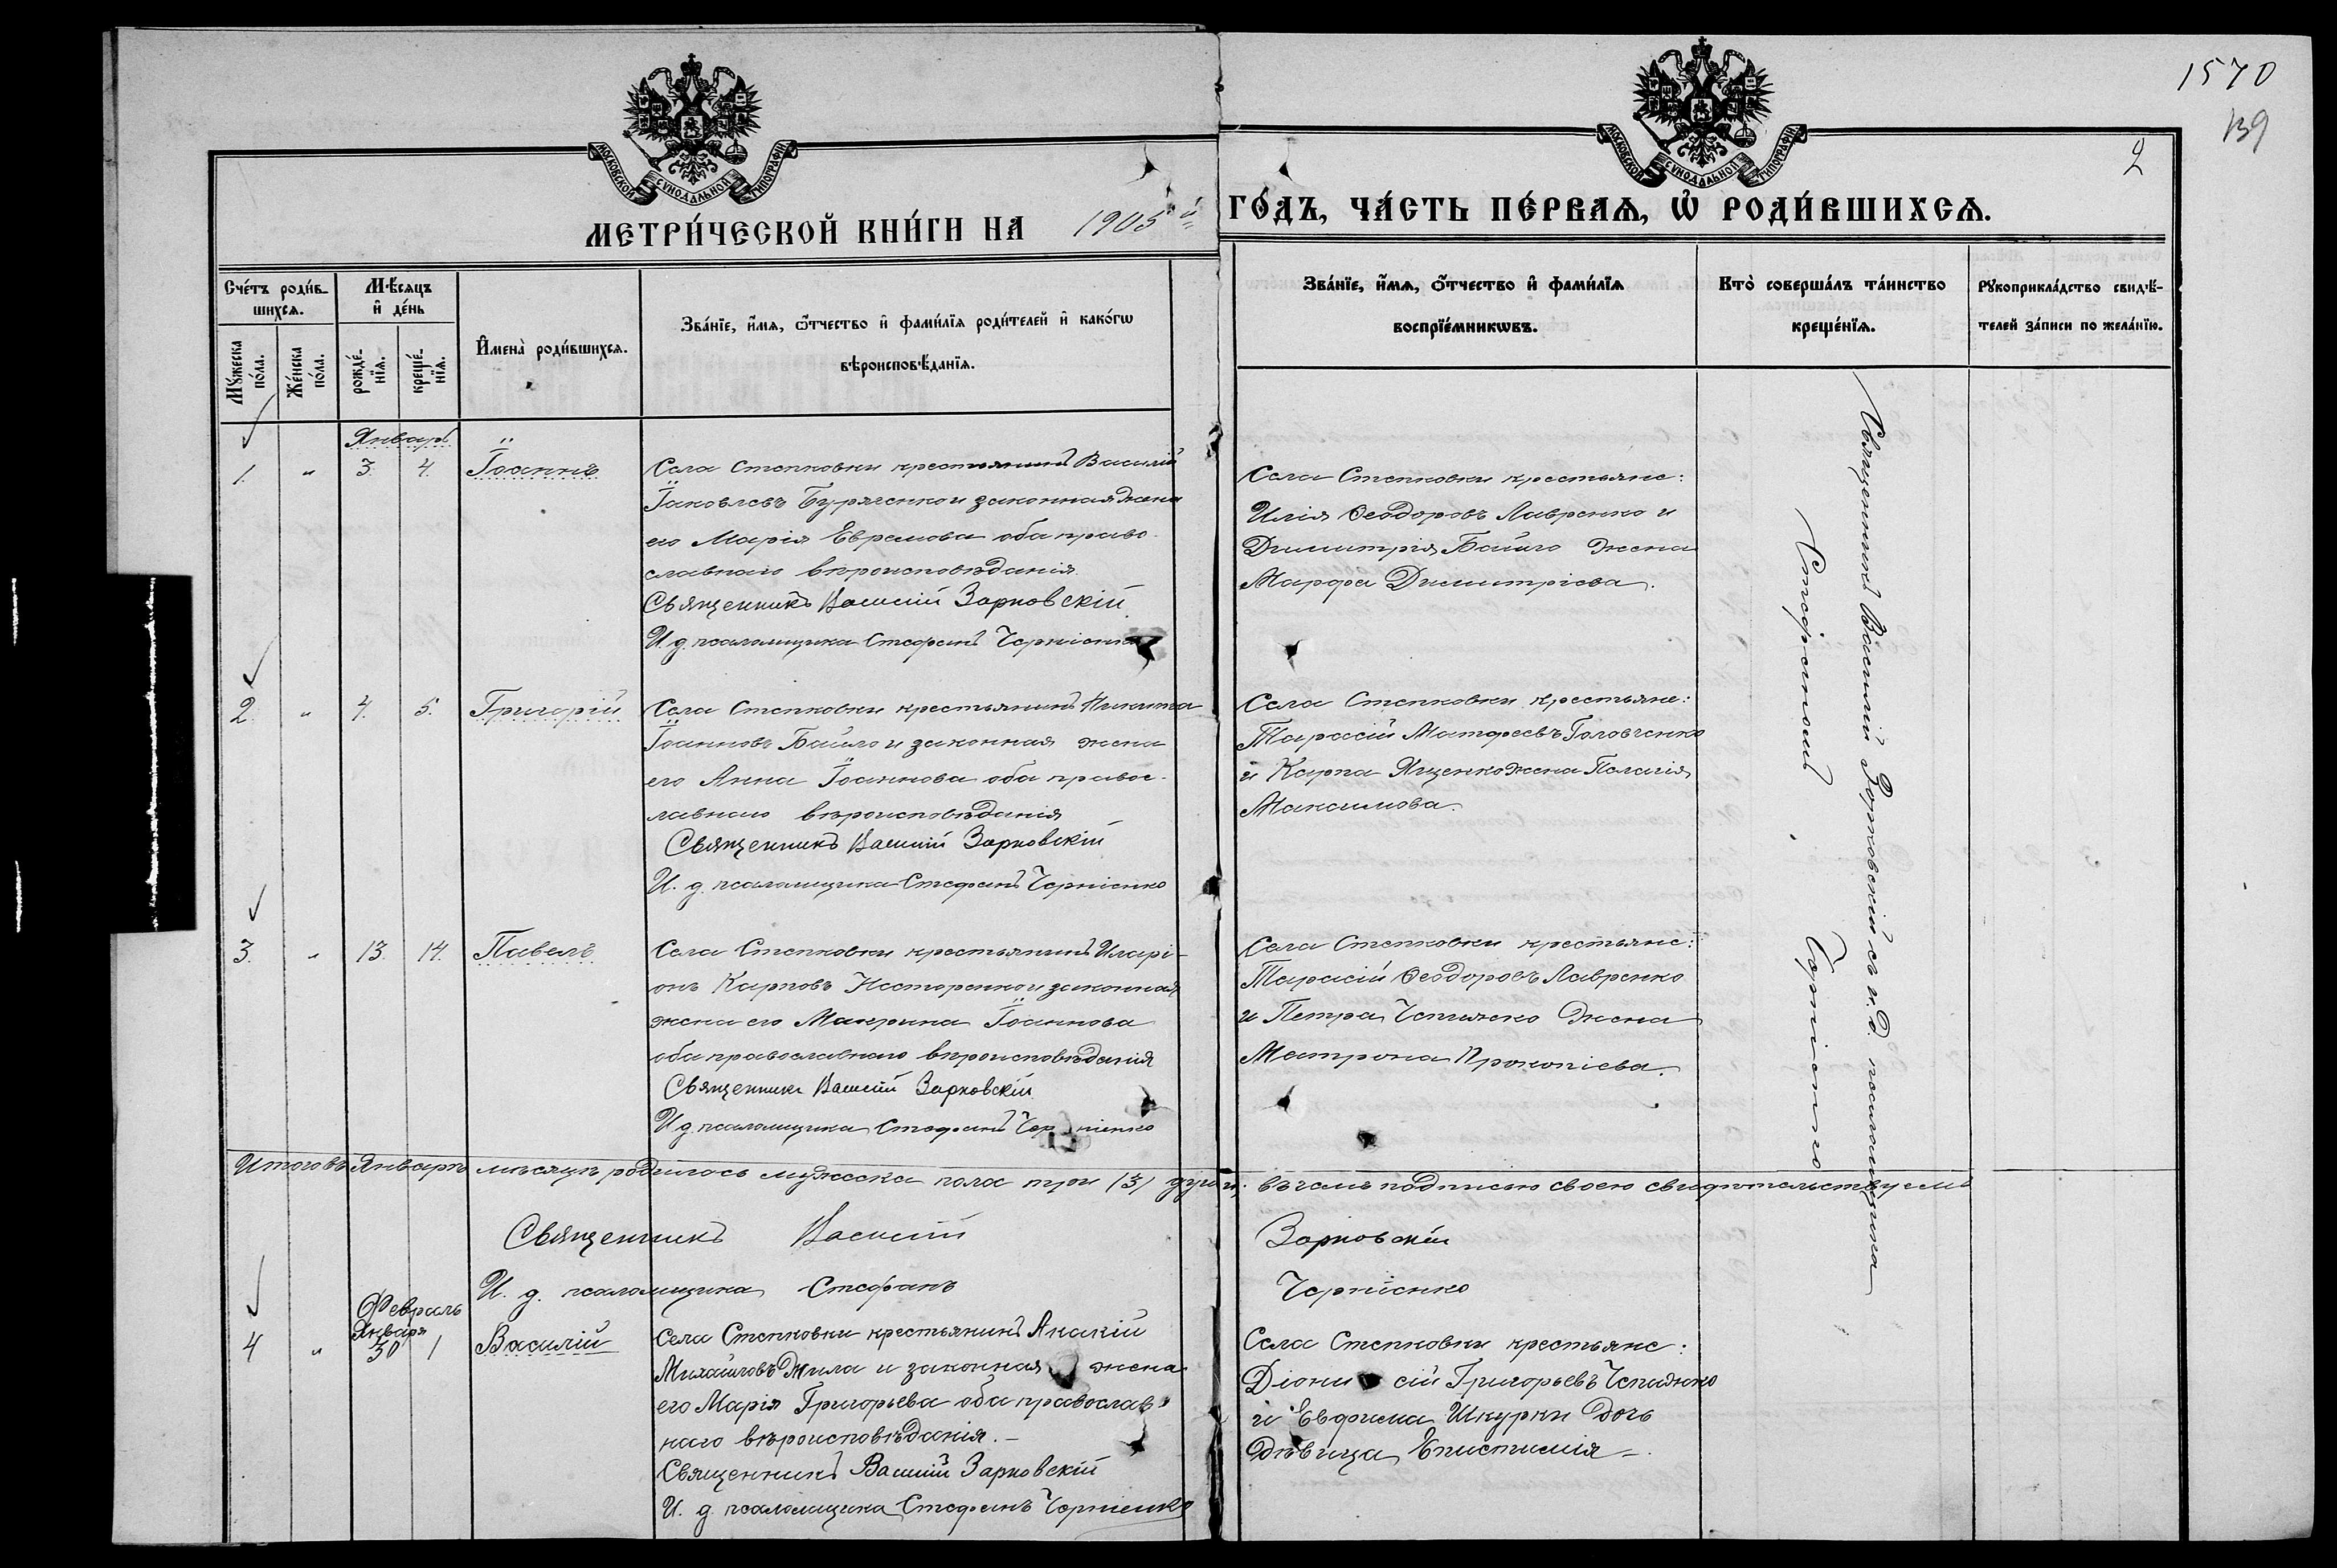 1570
139
2
МОСКОВСКОЙ СУНОДАЛЬНОЙ ТИПОГРАФІИ
МОСКОВСКОЙ СУНОДАЛЬНОЙ ТИПОГРАФІИ
МЕТРИ́ЧЕСКОЙ КНИ́ГИ НА 1905й ГО́ДЪ, ЧА́СТЬ ПЕ́РВАѦ, Ѡ҆ РОДИ́ВШИХСѦ.
Сче́тъ роди́в-
шихсѧ.
Мѣ́сяцъ
и҆ де́нь
Мꙋ́жеска
по́ла.
Же́нска
по́ла.
рожде́-
нїѧ.
креще́-
нїѧ.
И҆мена̀ роди́вшихсѧ.
Зва́нїе, и҆́мѧ, ѻ҆́тчество и҆ фами́лїѧ роди́телей и҆ како́гѡ
вѣроисповѣ́данїѧ.
Зва́нїе, и҆́мѧ, ѻ҆́тчество и҆ фами́лїѧ
воспрїе́мникѡвъ.
Кто̀ соверша́лъ та́инство
креще́нїѧ.
Рꙋкоприкла́дство свидѣ́-
телей за́писи по жела́нїю.
Январь
1. " 3. 4. Іоаннъ
Села Степковки крестьянинъ Василій
Іаковлевъ Буряченко и законная жена
его Марія Ефремова оба право-
славнаго вѣроисповѣданія
Священникъ Василій Зарковскій
И. д. псаломщика Стефанъ Черніенко
Села Степковки крестьяне:
Илія Ѳеодоровъ Лавренко и
Димитрія Байло жена
Марфа Димитріева.
2. " 4. 5. Григорій
Села Степковки крестьянинъ Никита
Іоанновъ Байло и законная жена
его Анна Іоаннова оба правос-
лавнаго вѣроисповѣданія
Священникъ Василій Зарковскій
И. д. псаломщика Стефанъ Черніенко
Села Степковки крестьяне:
Тарасій Матфеевъ Головченко
и Карпа Яценко жена Пелагія
Максимова.
3. " 13. 14. Павелъ
Села Степковки крестьянинъ Иларі-
онъ Карповъ Нестеренко и законная
жена его Макрина Іоаннова
оба православнаго вѣроисповѣданія
Священникъ Василій Зарковскій
И д. псаломщика Стефанъ Черніенко
Села Степковки крестьяне:
Тарасій Ѳеодоровъ Лавренко
и Петра Чепижко жена
Матрона Прокопіева.
Священникъ Василій Зарковскій съ и. д. псаломщика
Стефаномъ Черніенко
Итого въ Январѣ мѣсяцѣ родилось мужеска пола три (3) души; въ чемъ подписью своею свидѣтельствуемъ
Священникъ Василій Зарковскій
И. д. псаломщика Стефанъ Черніенко
Февраль
Января
4 " 30 1 Василій
Села Степковки крестьянинъ Акакій
Михайловъ Жила и законная жена
его Марія Григорьева оба православ-
наго вѣроисповѣданія.
Священникъ Василій Зарковскій
И. д. псаломщика Стефанъ Черніенко
Села Степковки крестьяне:
Діонисій Григорьевъ Чепижко
и Евфима Шкурки дочь
дѣвица Епистимія